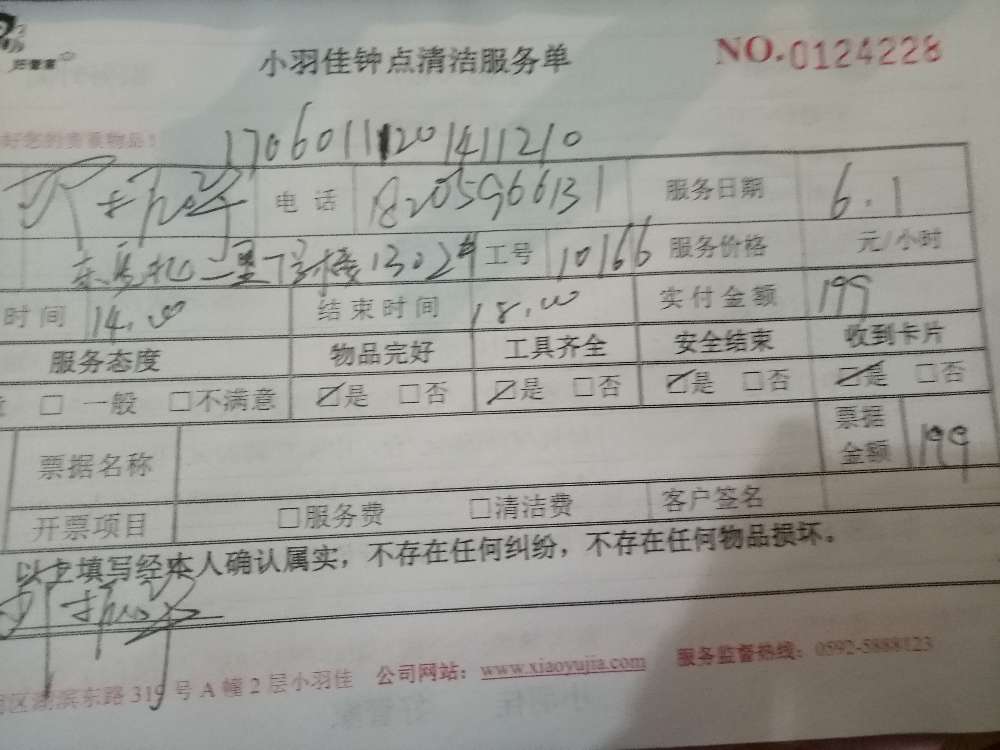 好管家
小羽佳钟点清洁服务单 NO.0124228
好您的贵重物品!
1706011201411210
电话 18205966131 服务日期 6.1
二里 1302 工号 10166 服务价格 元/小时
时间 14.00 结束时间 18.00 实付金额 199
服务态度 物品完好 工具齐全 安全结束 收到卡片
□ 一般 □不满意 ☑是 □否 ☑是 □否 ☑是 □否 ☑是 □否
票据名称 票据金额 199
开票项目 □服务费 □清洁费 客户签名
以上填写经本人确认属实，不存在任何纠纷，不存在任何物品损坏。
区湖滨东路319号A幢2层小羽佳 公司网站：www.xiaoyujia.com 服务监督热线：0592-5888123